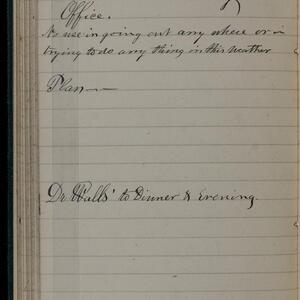 Office.
No use in going out any where or in
trying to do any thing in this weather
Plan—
Dr Walls' to Dinner & Evening.